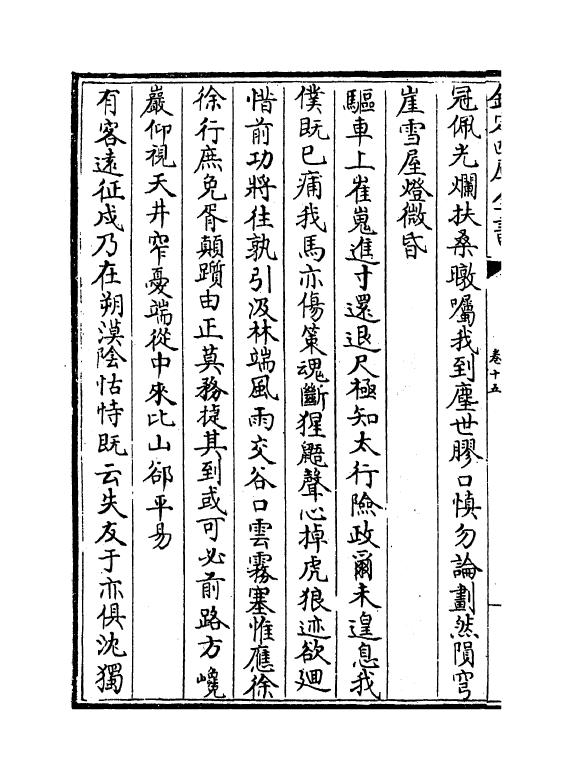 欽定四庫全書
卷十五
冠佩光爛扶桑暾囑我到塵世膠口慎勿論劃然隕穹
崖雪屋燈微昏
驅車上崔嵬進寸還退尺極知太行險政爾未遑息我
僕既已痡我馬亦傷策魂斷猩鼯聲心掉虎狼迹欲迴
惜前功將往孰引汲林端風雨交谷口雲霧塞惟應徐
徐行庶免胥顛躓由正莫務捷其到或可必前路方巉
巖仰視天井窄憂端從中來比山郤平易
有客遠征戍乃在朔漠陰怙恃既云失友于亦俱沈獨